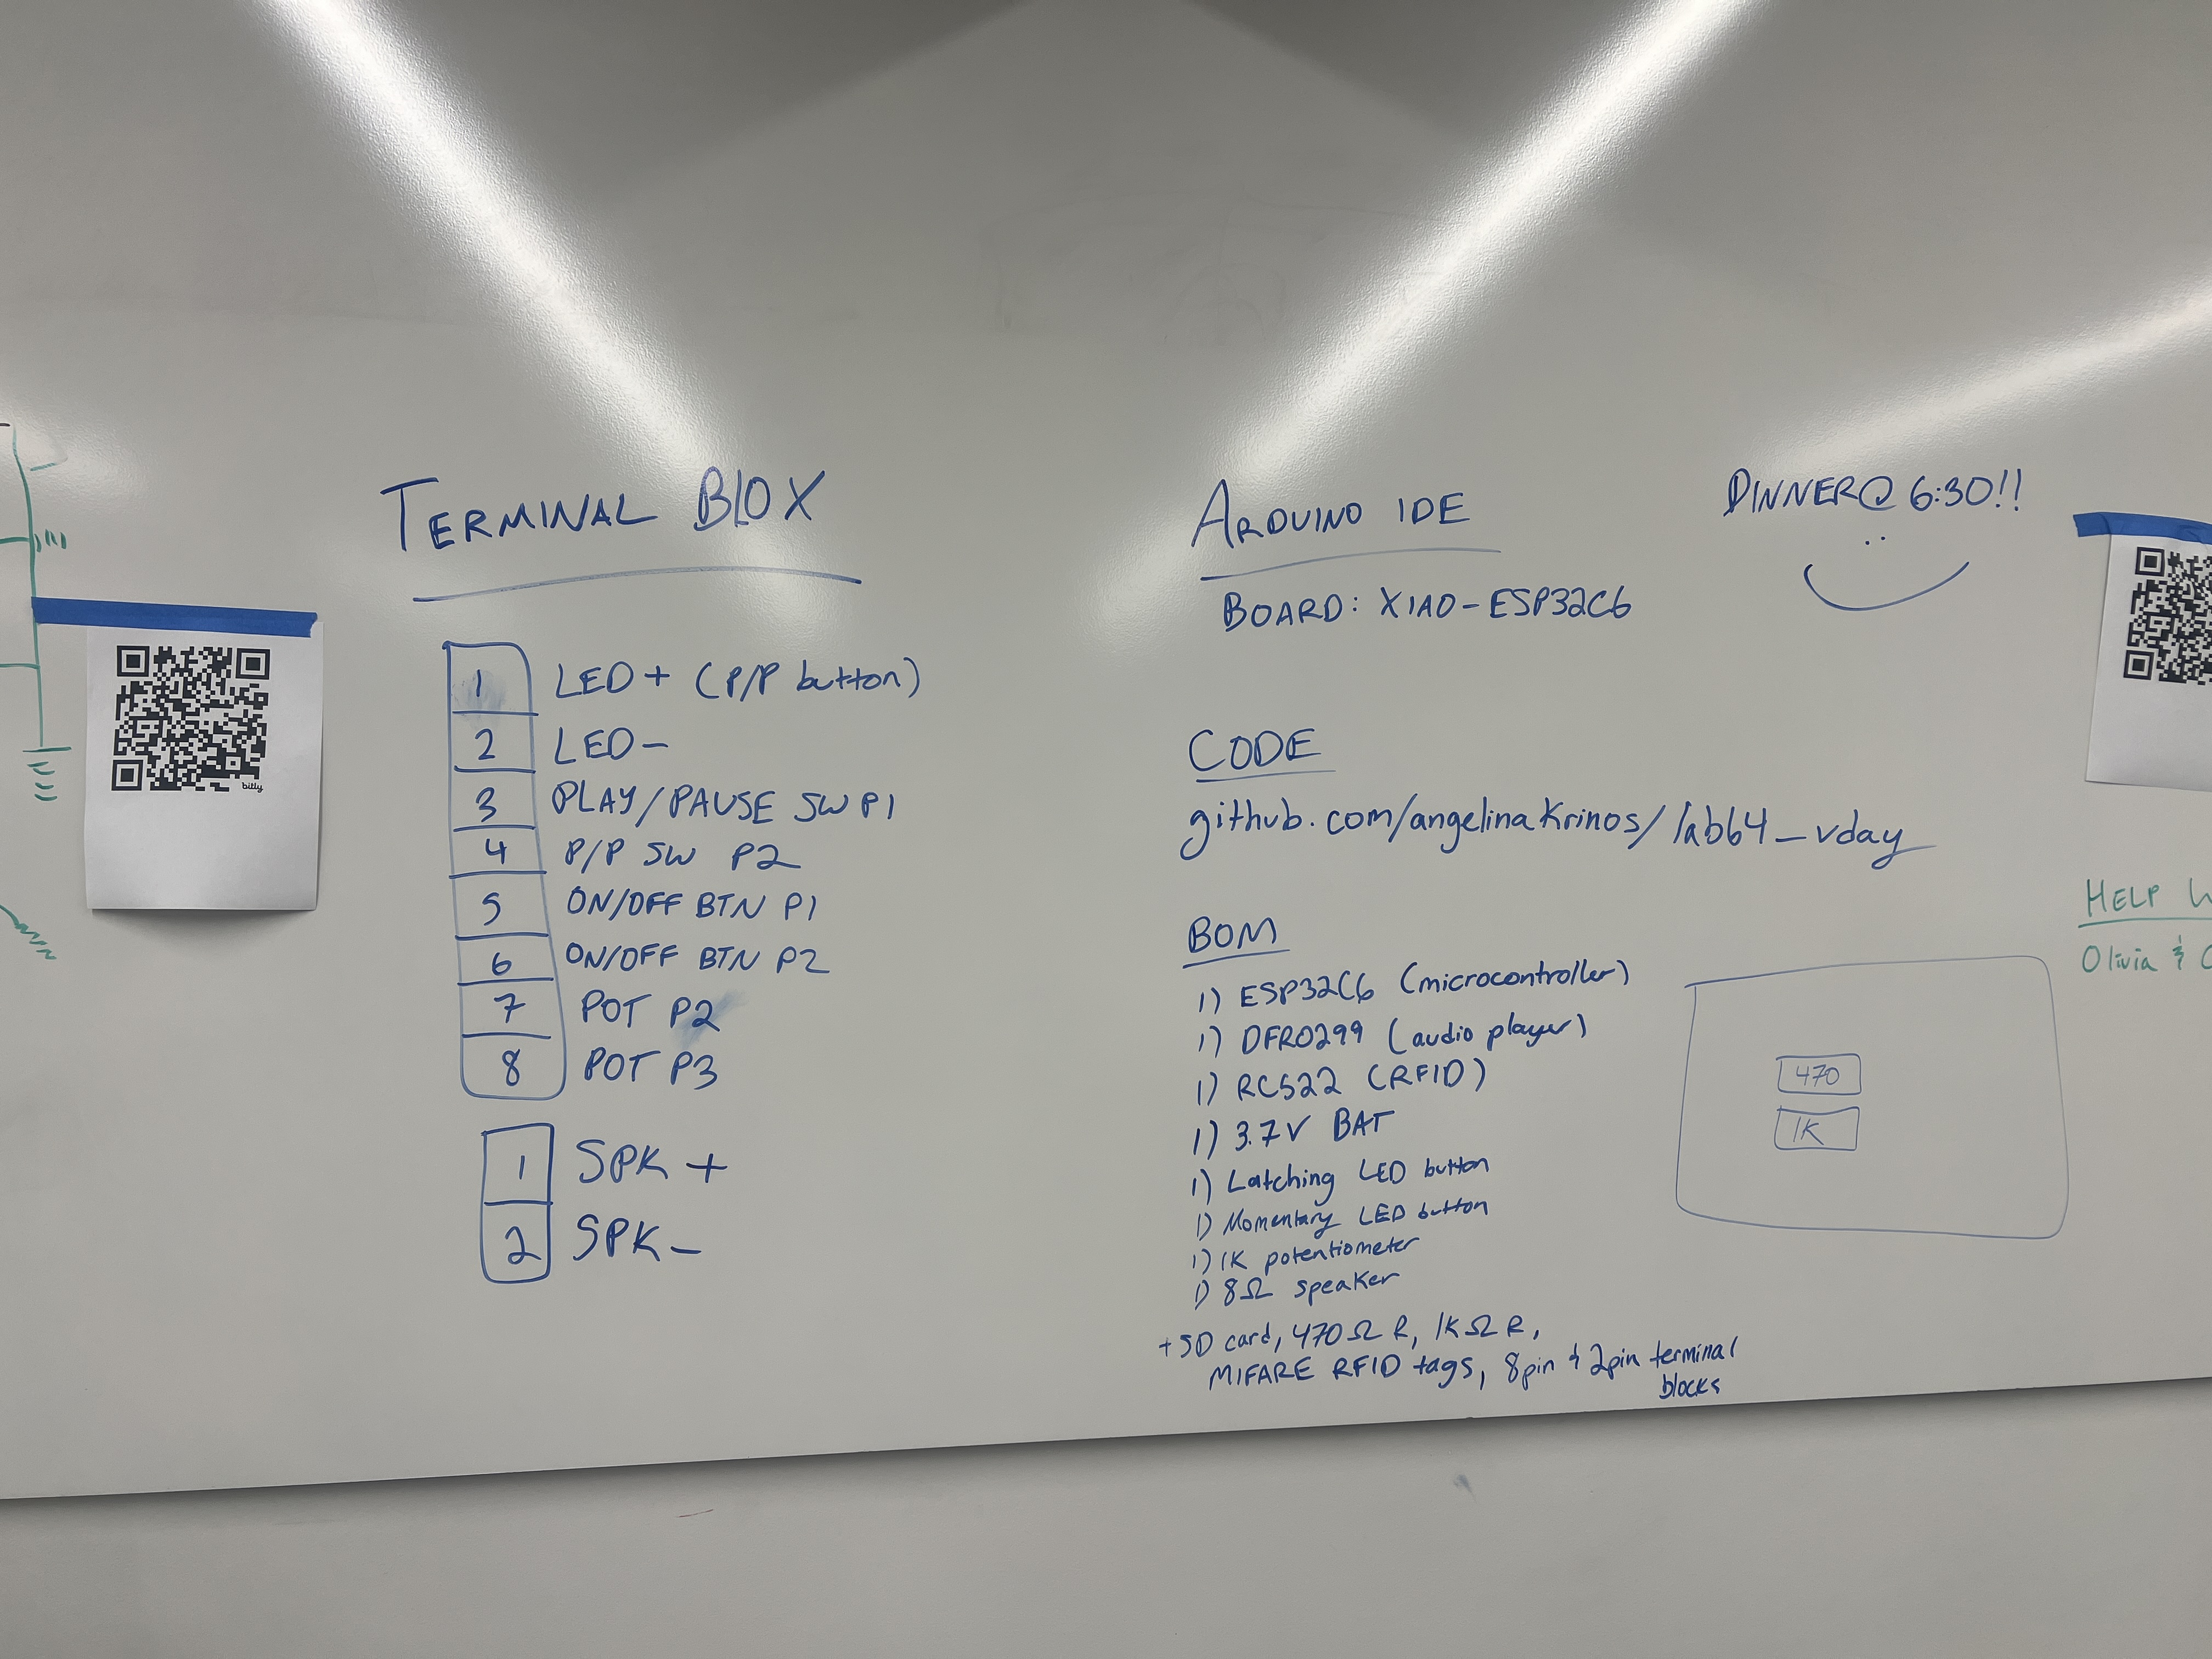 TERMINAL BLOX
1 LED+ (P/P button)
2 LED-
3 PLAY/PAUSE SW P1
4 P/P SW P2
5 ON/OFF BTN P1
6 ON/OFF BTN P2
7 POT P2
8 POT P3
1 SPK +
2 SPK -
bitly
ARDUINO IDE
BOARD: XIAO-ESP32C6
CODE
github.com/angelinakrinos/lab64_vday
BOM
1) ESP32C6 (microcontroller)
1) DFR0299 (audio player)
1) RC522 (RFID)
1) 3.7V BAT
1) Latching LED button
1) Momentary LED button
1) 1K potentiometer
1) 8Ω speaker
+ SD card, 470Ω R, 1KΩ R,
MIFARE RFID tags, 8pin & 2pin terminal
blocks
470
1K
DINNER@ 6:30!!
HELP
Olivia &